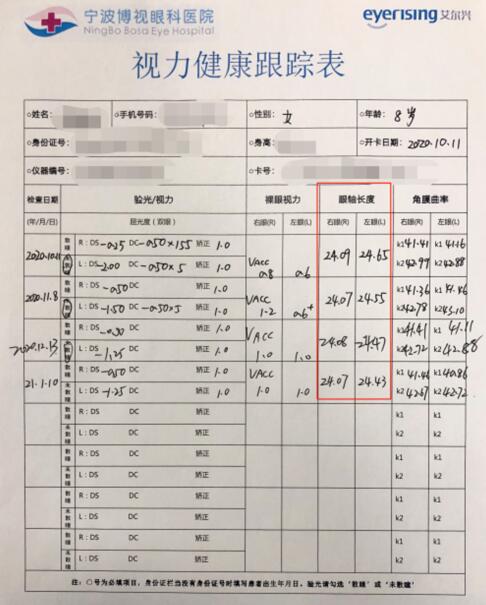 宁波博视眼科医院 eyerising艾尔兴
NingBo Bosa Eye Hospital
视力健康跟踪表
○姓名: ○手机号码: ○性别: 女 ○年龄: 8岁
○身份证号: ○身高: ○开卡日期: 2020.10.11
○仪器编号: ○卡号:
检查日期 验光/视力 裸眼视力 眼轴长度 角膜曲率
(年/月/日) 屈光度(双眼) 右眼(R) 左眼(L) 右眼(R) 左眼(L) 右眼(R) 左眼(L)
2020.10.11 散瞳 R:DS -0.25 DC -0.50×155 矫正 1.0 VACC 0.8 0.6 24.09 24.65 k1 41.41 k1 41.16
未散瞳 L:DS -2.00 DC -0.50×5 矫正 1.0 k2 42.99 k2 42.88
2020.11.8 散瞳 R:DS -0.50 DC 矫正 1.0 VACC 1.2 0.6+ 24.07 24.55 k1 41.36
未散瞳 L:DS -1.50 DC -0.50×5 矫正 1.0 k2 42.78 k2 43.10
2020.12.13 散瞳 R:DS DC 矫正 VACC 1.0 1.0 24.08 24.47 k1 41.41 k1 41.11
未散瞳 L:DS -1.25 DC 矫正 1.0 k2 42.72 k2 42.88
21.1.10 散瞳 R:DS -0.50 DC 矫正 1.0 VACC 1.0 1.0 24.07 24.43 k1 41.46 k1 40.86
未散瞳 L:DS -1.25 DC 矫正 1.0 k2 42.67 k2 42.72
散瞳 R:DS DC 矫正 k1 k1
未散瞳 L:DS DC 矫正 k2 k2
散瞳 R:DS DC 矫正 k1 k1
未散瞳 L:DS DC 矫正 k2 k2
散瞳 R:DS DC 矫正 k1 k1
未散瞳 L:DS DC 矫正 k2 k2
散瞳 R:DS DC 矫正 k1 k1
未散瞳 L:DS DC 矫正 k2 k2
注:○号为必填项目,身份证栏当没有身份证号时填写患者出生年月日。验光请勾选‘散瞳’或‘未散瞳’